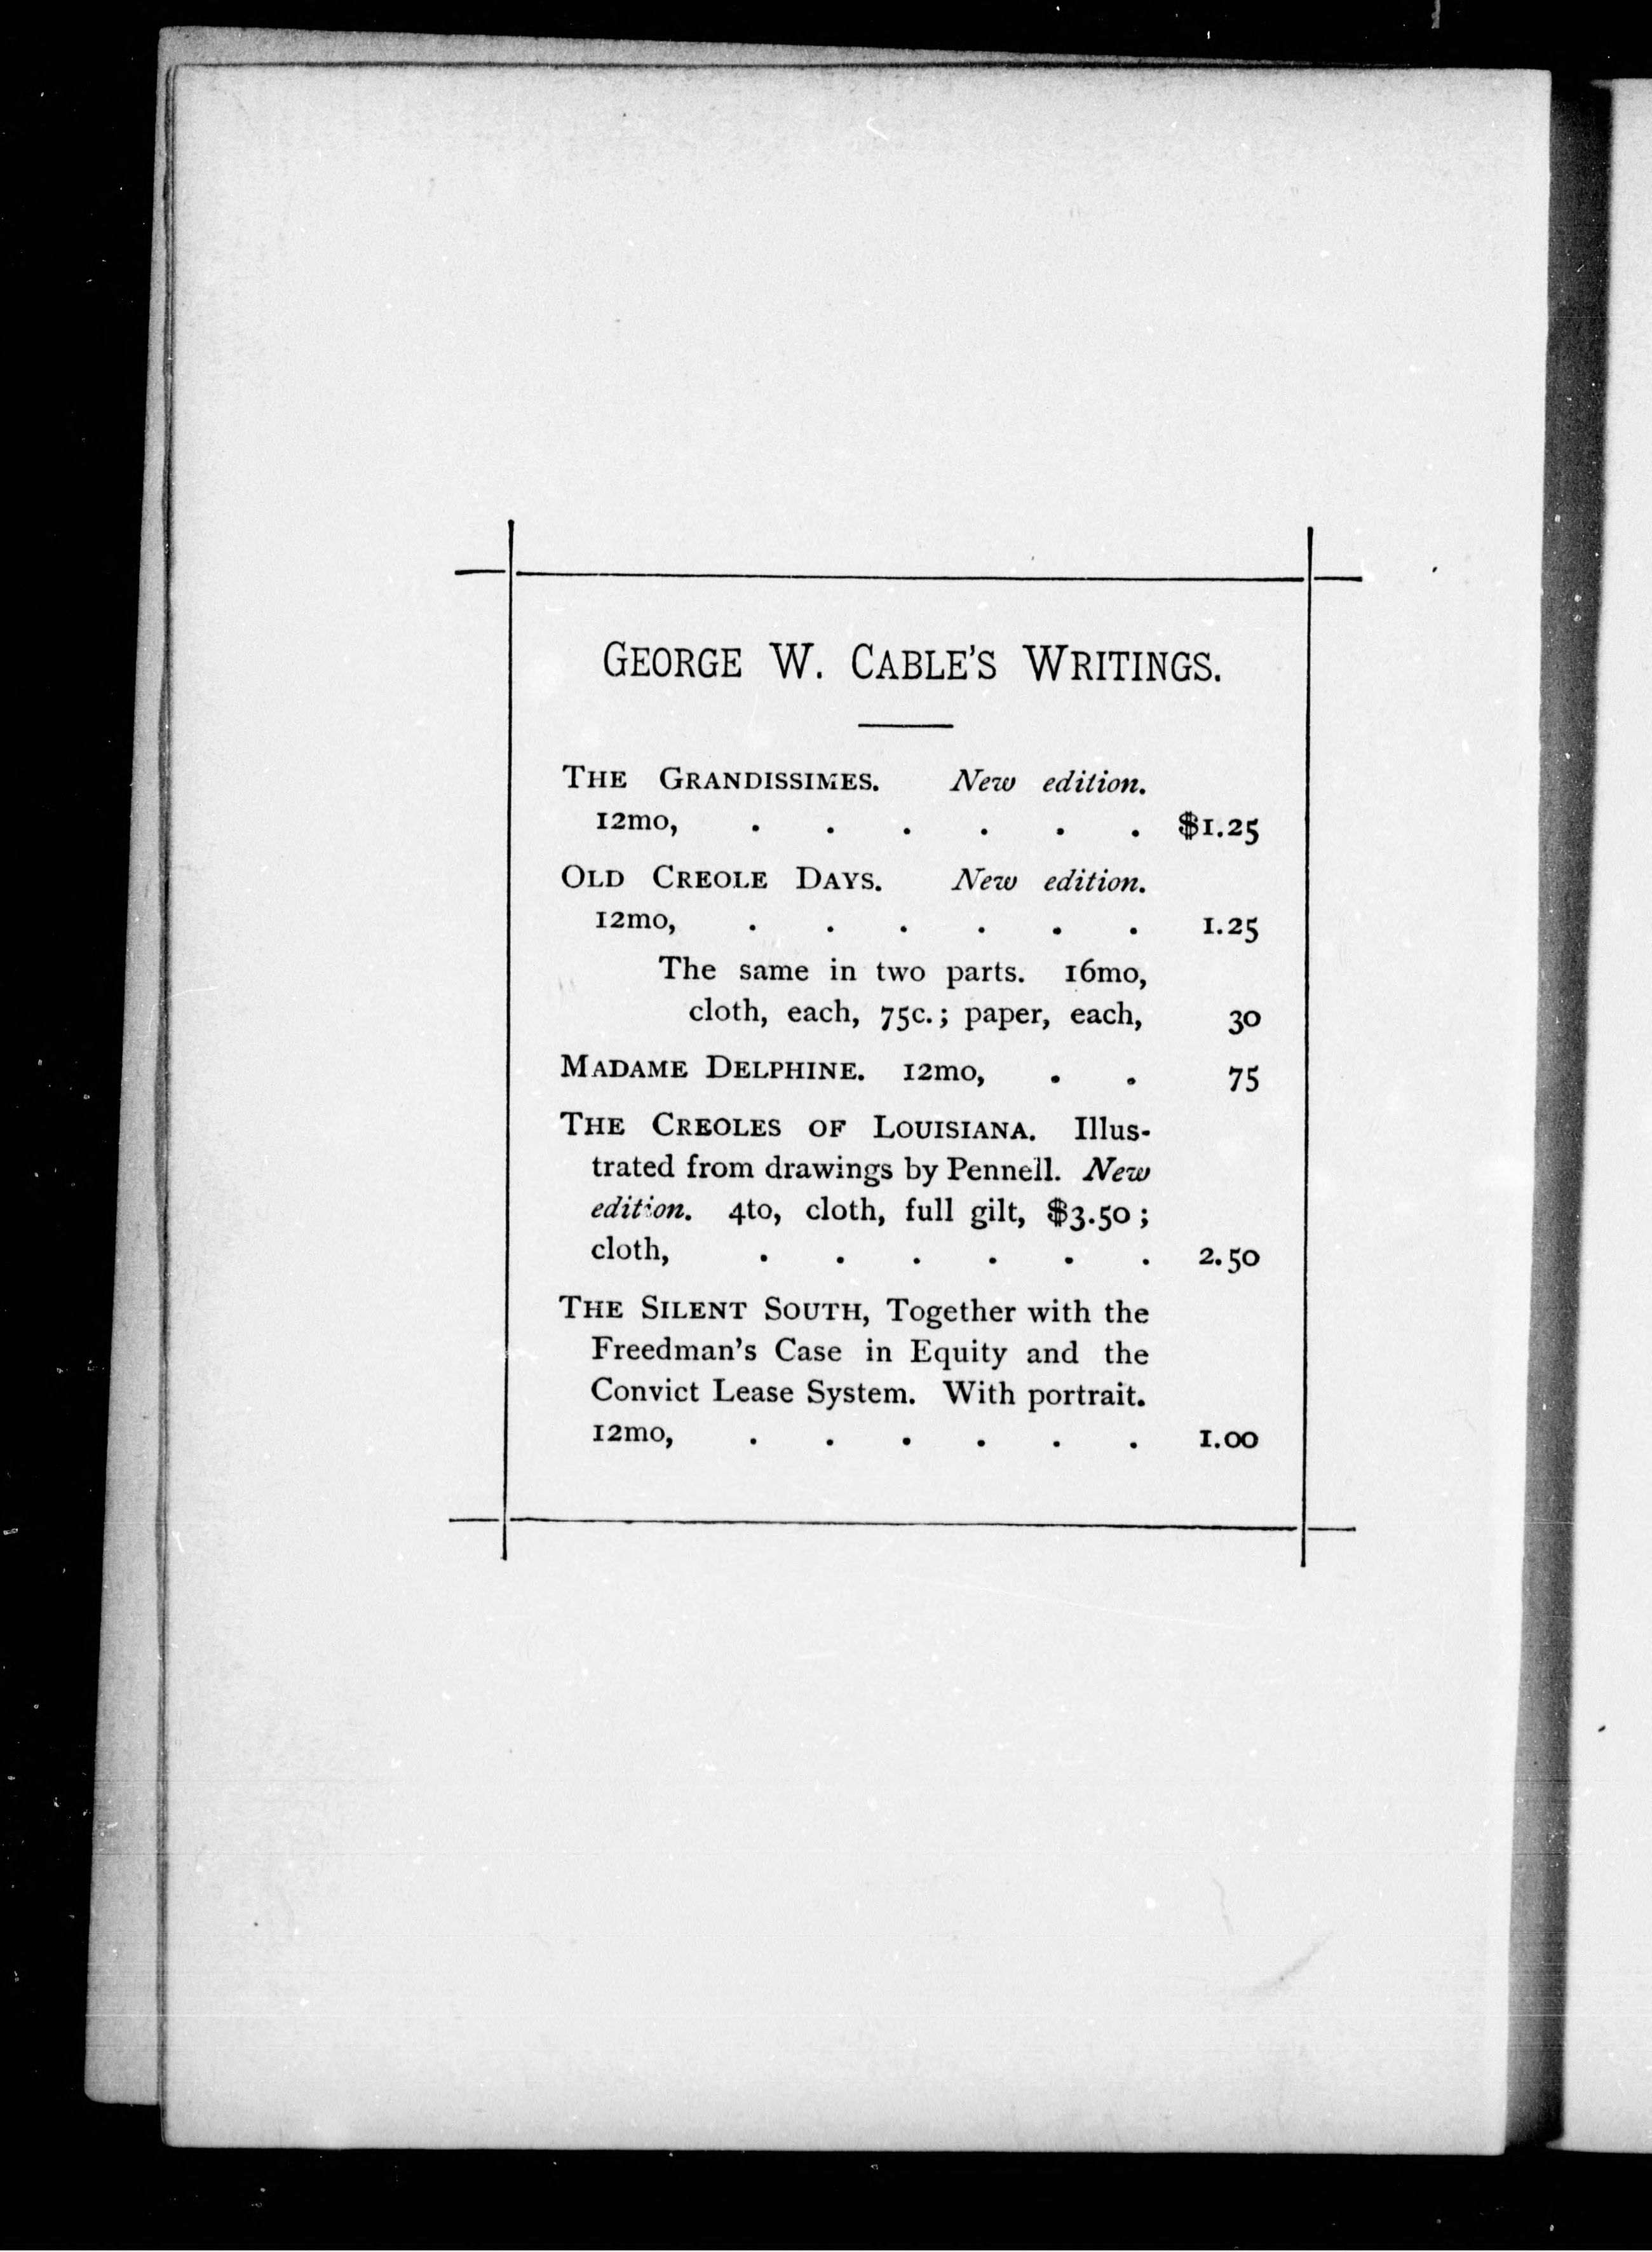 GEORGE W. CABLE'S WRITINGS.
THE GRANDISSIMES. New edition.
12mo, . . . . . . $1.25
OLD CREOLE DAYS. New edition.
12mo, . . . . . . 1.25
The same in two parts. 16mo,
cloth, each, 75c.; paper, each, 30
MADAME DELPHINE. 12mo, . . 75
THE CREOLES OF LOUISIANA. Illus-
trated from drawings by Pennell. New
edition. 4to, cloth, full gilt, $3.50;
cloth, . . . . . . 2.50
THE SILENT SOUTH, Together with the
Freedman's Case in Equity and the
Convict Lease System. With portrait.
12mo, . . . . . . 1.00